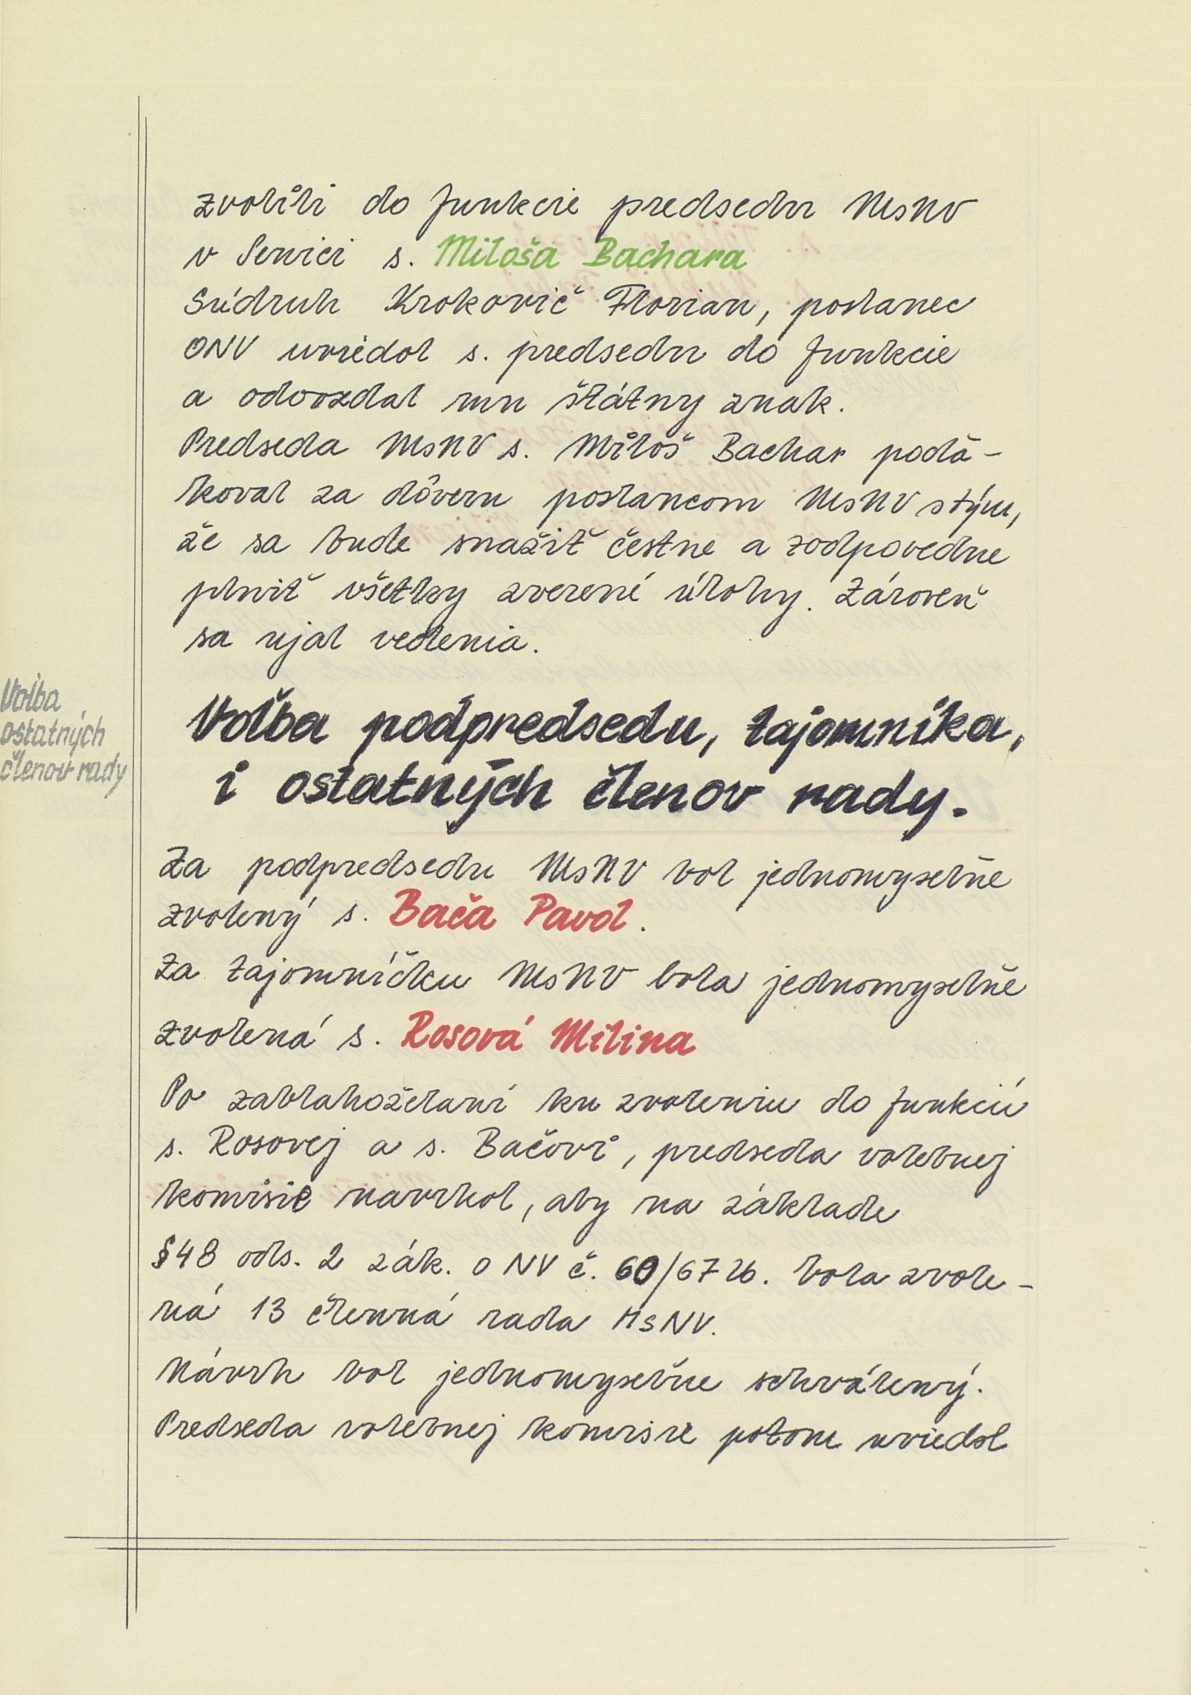 zvolili do funkcie predsedu MsNV
v Senici s. Miloša Bachara
Súdruh Krokovič Florian, poslanec
ONV uviedol s. predsedu do funkcie
a odovzdal mu štátny znak.
Predseda MsNV s. Miloš Bachar poďa-
koval za dôveru poslancom MsNV s tým,
že sa bude snažiť čestne a zodpovedne
plniť všetky zverené úlohy. Zároveň
sa ujal vedenia.
Voľba
ostatných
členov rady
Voľba podpredsedu, tajomníka,
i ostatných členov rady.
Za podpredsedu MsNV bol jednomyseľne
zvolený s. Bača Pavol.
Za tajomníčku MsNV bola jednomyseľne
zvolená s. Rosová Milina
Po zablahoželaní ku zvoleniu do funkcií
s. Rosovej a s. Bačovi, predseda volebnej
komisie navrhol, aby na základe
§48 ods. 2 zák. o NV č. 60/67 Zb. bola zvole-
ná 13 členná rada MsNV.
Návrh bol jednomyseľne schválený.
Predseda volebnej komisie potom uviedol